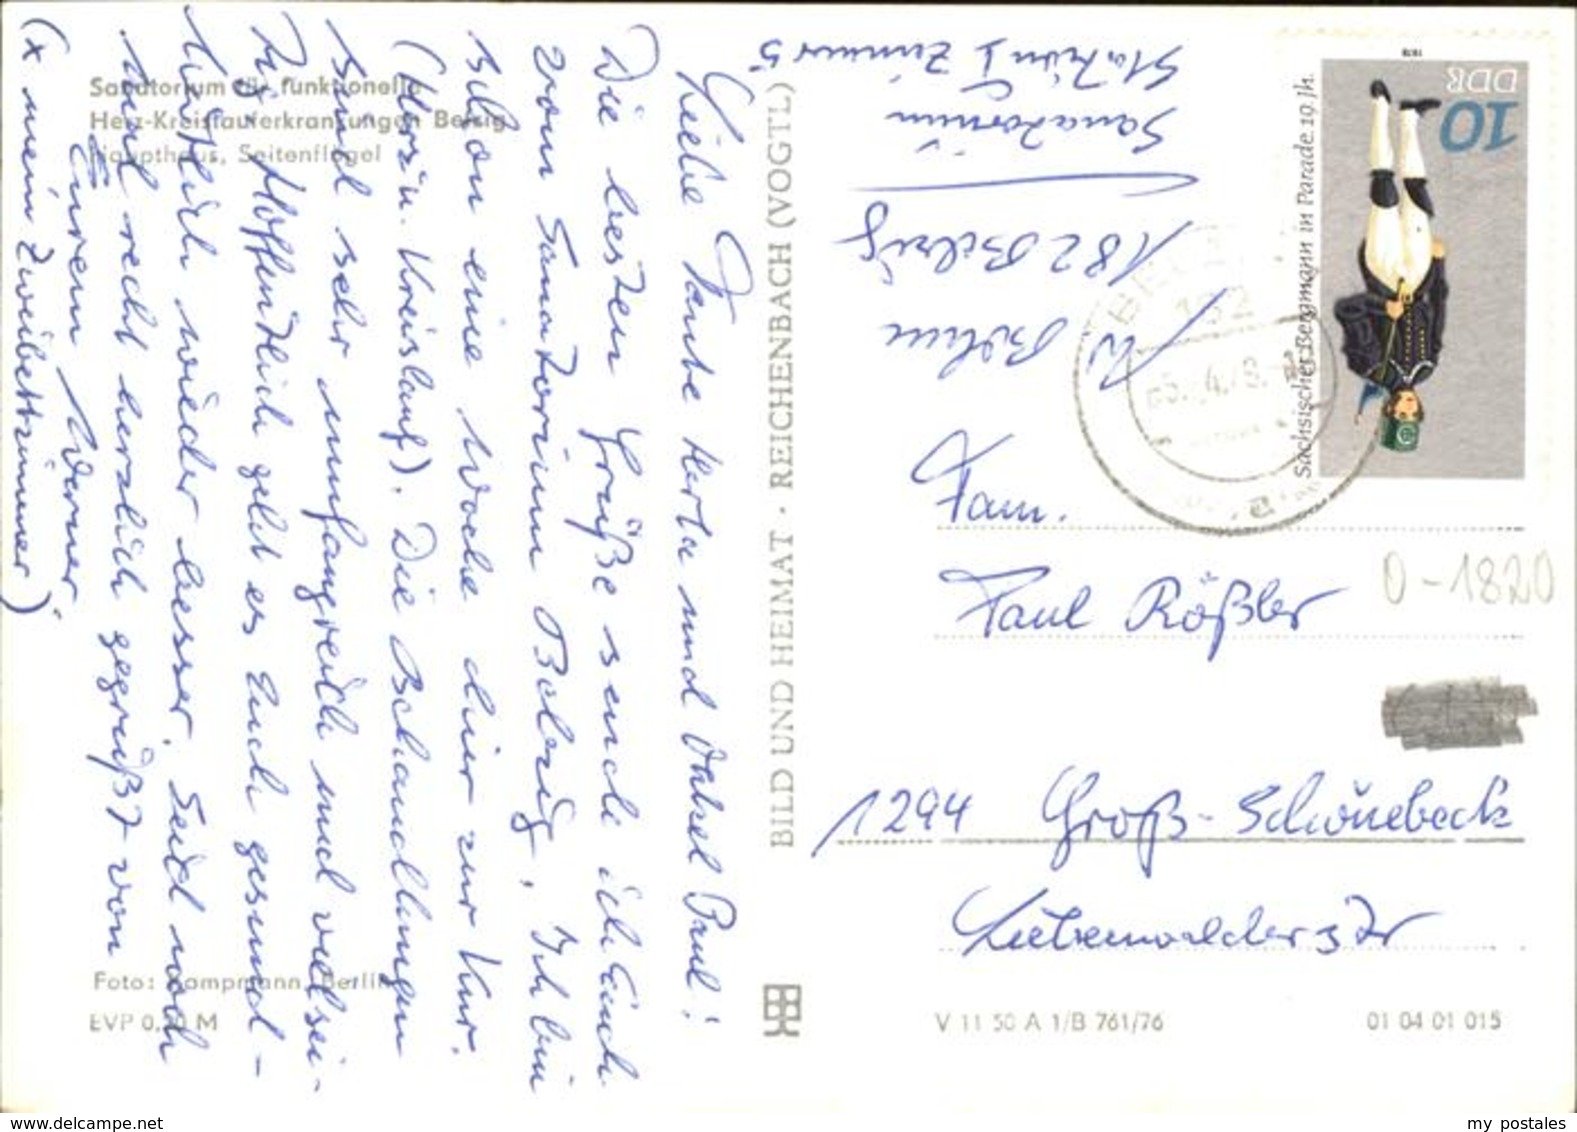 Sanatorium für funktionelle
Herz-Kreislauferkrankungen Belzig
Haupthaus, Seitenflügel
Liebe Tante Herta und Onkel Paul!
Die besten Grüße sende ich Euch
vom Sanatorium Belzig. Ich bin
schon eine Woche hier zur Kur.
(Herz u. Kreislauf). Die Behandlungen
sind sehr umfangreich und vielsei-
tig. Hoffentlich geht es Euch gesund-
heitlich wieder besser. Seid noch
mal recht herzlich gegrüßt von
Eurem Werner.
(x mein Zweibettzimmer)
Foto: Kampmann, Berlin
EVP 0,20 M
BILD UND HEIMAT · REICHENBACH (VOGTL)
W Böhm
182 Belzig
Sanatorium
Station I Zimmer 5
DDR
10
Sächsischer Bergmann in Parade 19. Jh.
1978
182
Fam.
Paul Rößler
0-1820
1294 Groß-Schönebeck
Liebenwalder Str
V 11 50 A 1/B 761/76
01 04 01 015
my postales
www.delcampe.net